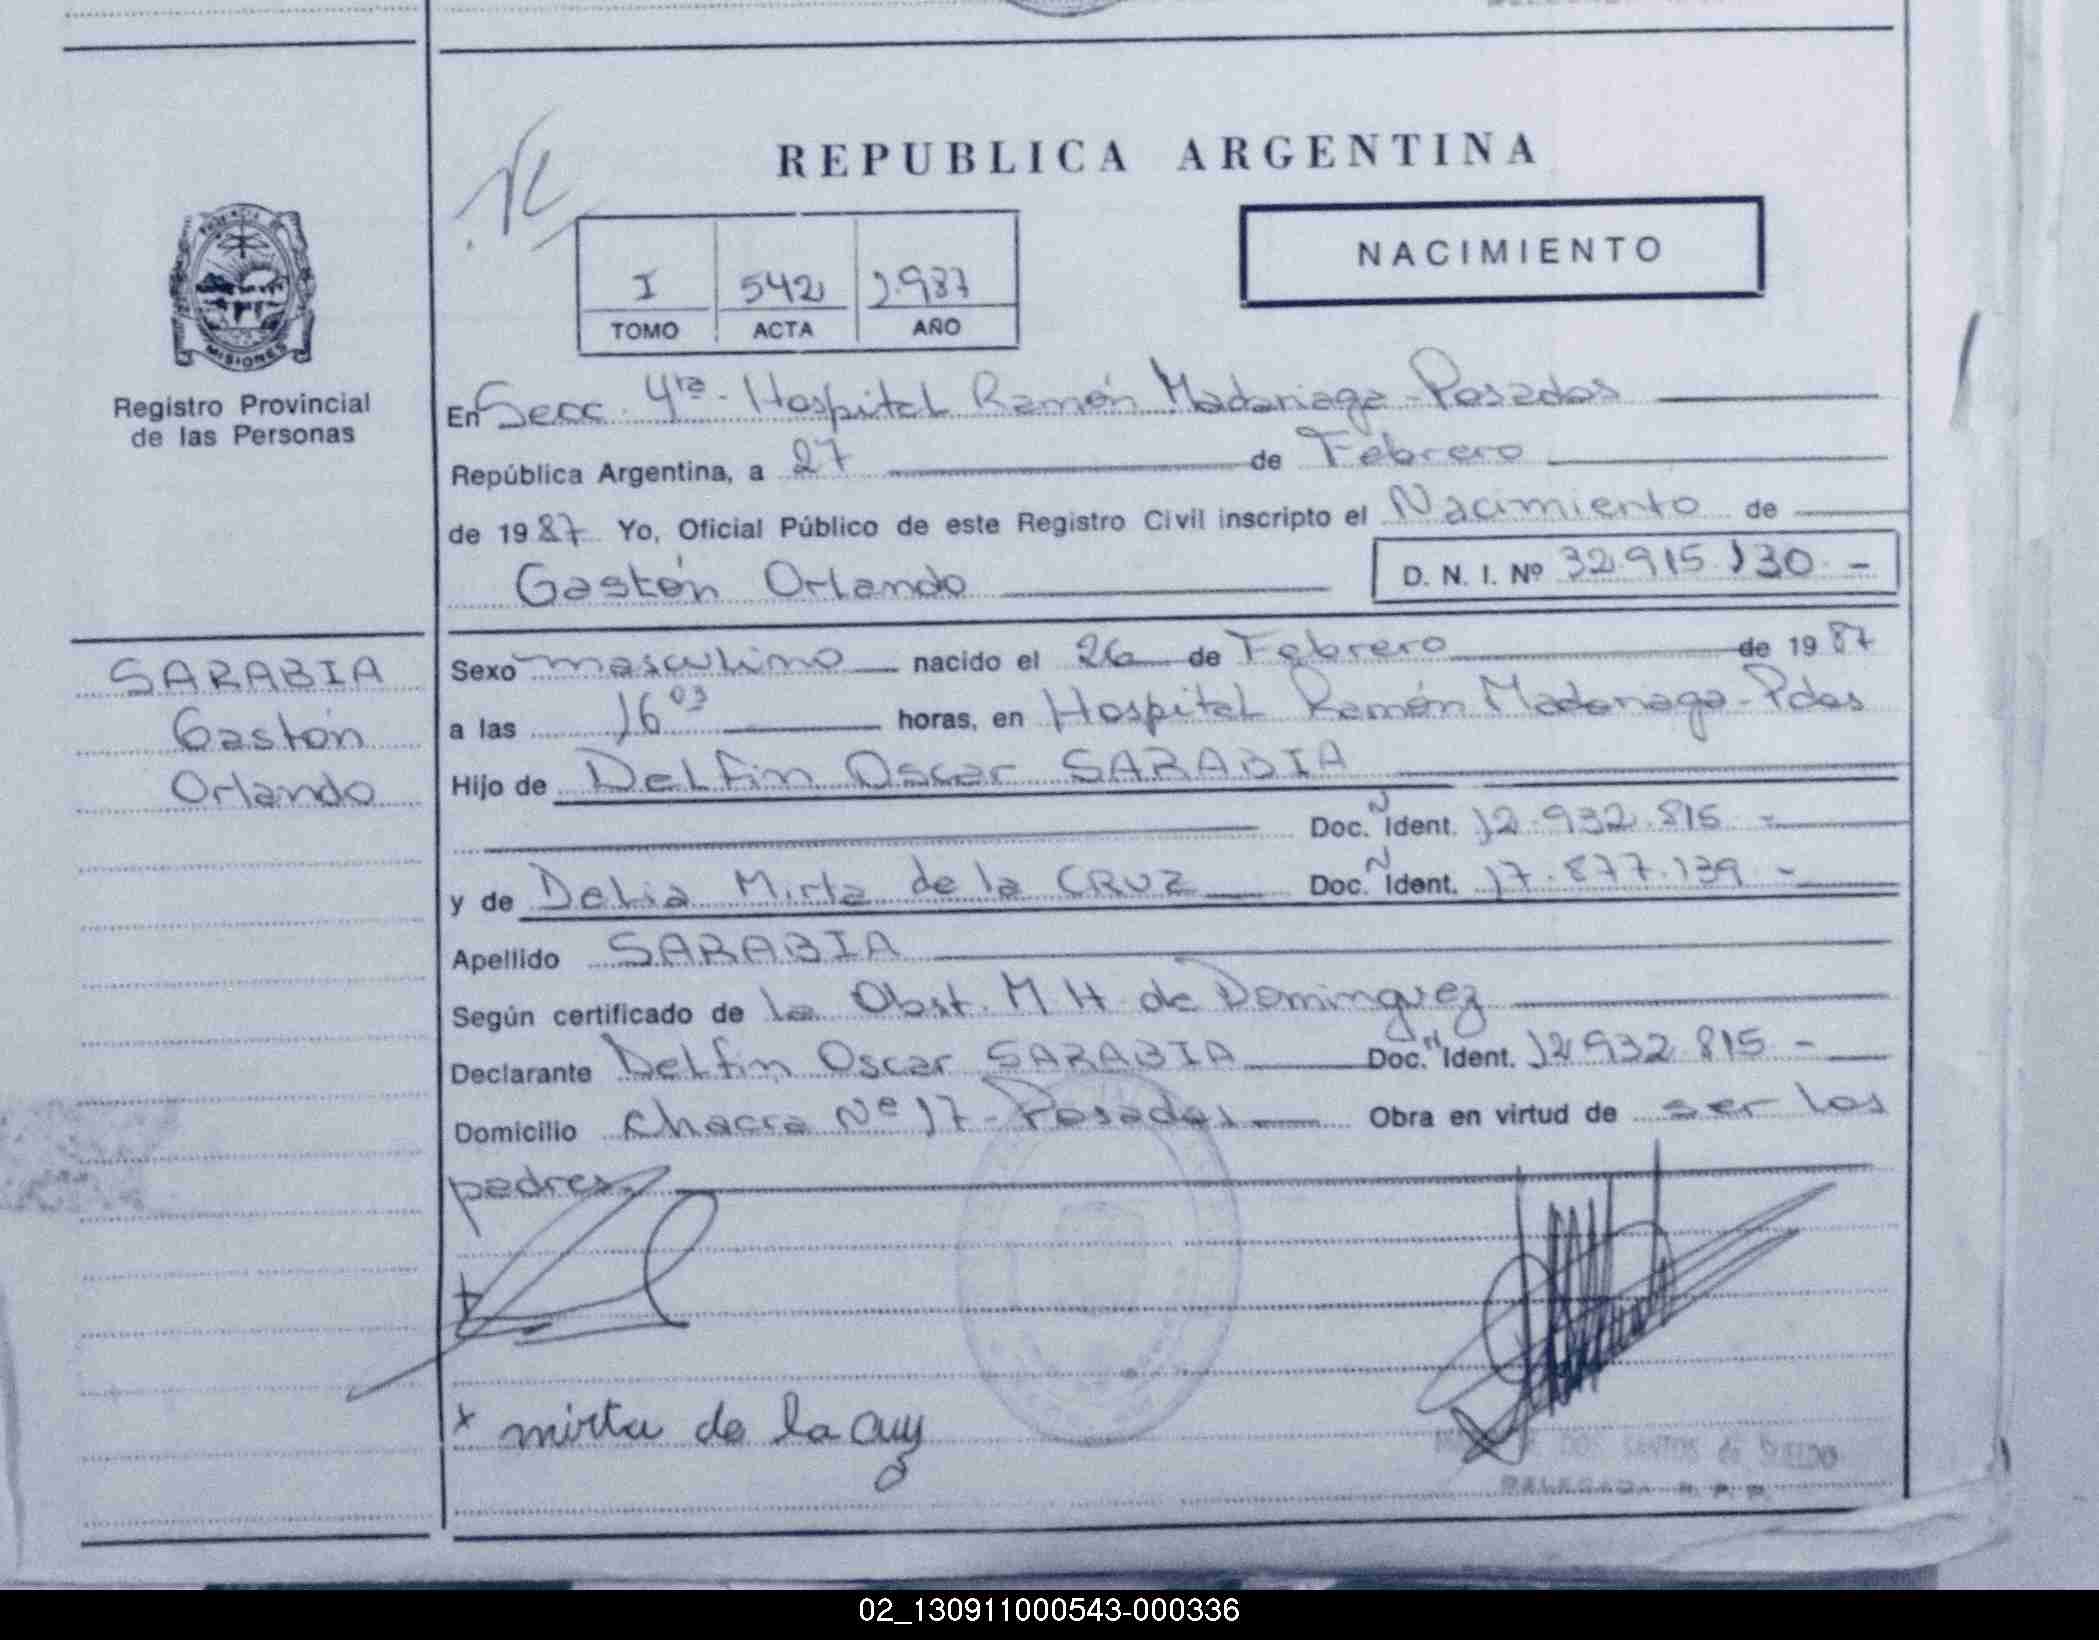 REPUBLICA ARGENTINA
NACIMIENTO
I 542 1.987
TOMO ACTA AÑO
MISIONES
Registro Provincial
de las Personas
En Secc. 4ta - Hospital Ramón Madariaga - Posadas
República Argentina, a 27 de Febrero
de 1987 Yo, Oficial Público de este Registro Civil inscripto el Nacimiento de
Gastón Orlando D. N. I. Nº 32.915.130 -
SARABIA
Gastón
Orlando
Sexo masculino nacido el 26 de Febrero de 1987
a las 16 03 horas, en Hospital Ramón Madariaga - Pdas
Hijo de Delfin Oscar SARABIA
Doc. Ident. 12.932.815 -
y de Delia Mirta de la CRUZ Doc. Ident. 17.877.139 -
Apellido SARABIA
Según certificado de la Obst. M H de Dominguez
Declarante Delfin Oscar SARABIA Doc. Ident. 12.932.815 -
Domicilio Chacra Nº 17 - Posadas Obra en virtud de ser los
padres.
x mirta de la cruz
DOS SANTOS de SUELDO
DELEGADA R. P. P.
02_130911000543-000336